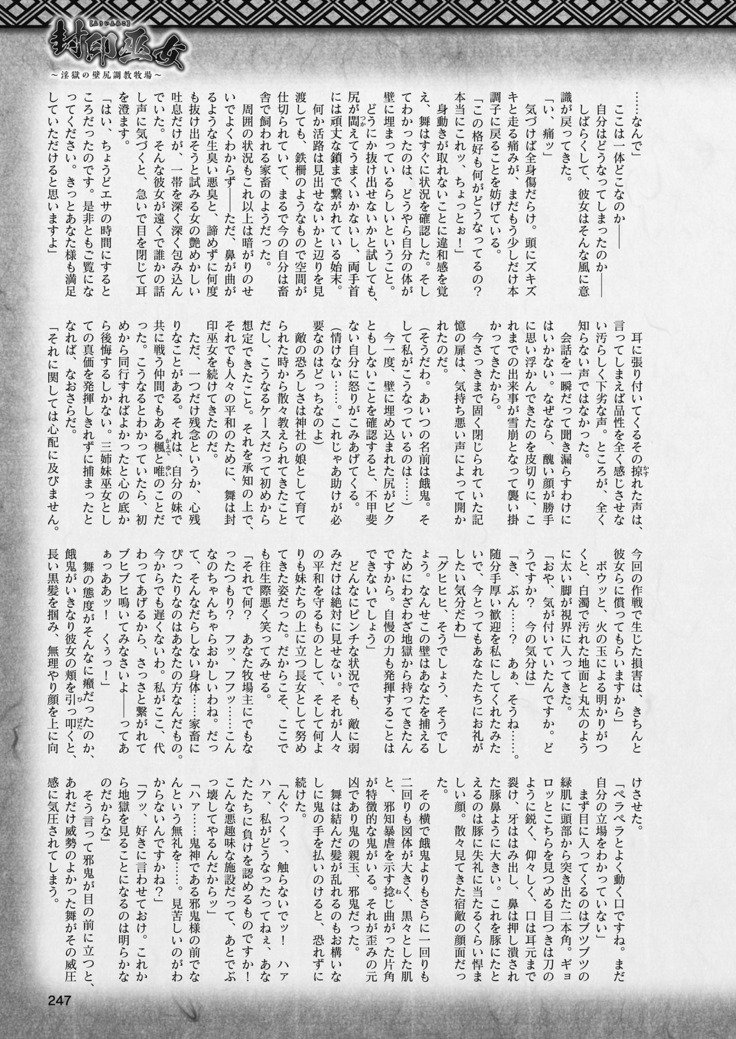 【ふういんみこ】
封印巫女
〜淫獄の壁尻調教牧場〜
……なんで」
　ここは一体どこなのか――
　自分はどうなってしまったのか――
　しばらくして、彼女はそんな風に意
識が戻ってきた。
「い、痛ッ」
　気づけば全身傷だらけ。頭にズキズ
キと走る痛みが、まだもう少しだけ本
調子に戻ることを妨げている。
「この格好も何がどうなってるの？
本当にこれッ、ちょっとぉ！」
　身動きが取れないことに違和感を覚
え、舞はすぐに状況を確認した。そし
てわかったのは、どうやら自分の体が
壁に埋まっているらしいということ。
　どうにか抜け出せないかと試しても、
尻が閊えてうまくいかないし、両手首
には頑丈な鎖まで繋がれている始末。
　何か活路は見出せないかと辺りを見
渡しても、鉄柵のようなもので空間が
仕切られていて、まるで今の自分は畜
舎で飼われる家畜のようだった。
　周囲の状況もこれ以上は暗がりのせ
いでよくわからず――ただ、鼻が曲が
るような生臭い悪臭と、諦めずに何度
も抜け出そうと試みる女の艶めかしい
吐息だけが、一帯を深く深く包み込ん
でいた。そんな彼女が遠くで誰かの話
し声に気づくと、急いで目を閉じて耳
を澄ます。
「はい、ちょうどエサの時間にすると
ころだったのです。是非ともご覧にな
ってください。きっとあなた様も満足
していただけると思いますよ」
　耳に張り付いてくるその掠れた声は、
言ってしまえば品性を全く感じさせな
い汚らしく下劣な声。ところが、全く
知らない声ではなかった。
　会話を一瞬だって聞き漏らすわけに
はいかない。なぜなら、醜い顔が勝手
に思い浮かんできたのを皮切りに、こ
れまでの出来事が雪崩となって襲い掛
かってきたから。
　今さっきまで固く閉じられていた記
憶の扉は、気持ち悪い声によって開か
れたのだ。
（そうだわ。あいつの名前は餓鬼。そ
して私がこうなっているのは……）
　今一度、壁に埋め込まれた尻がピク
ともしないことを確認すると、不甲斐
ない自分に怒りがこみあげてくる。
（情けない……。これじゃあ助けが必
要なのはどっちなのよ）
　敵の恐ろしさは神社の娘として育て
られた時から散々教えられてきたこと
だし、こうなるケースだって初めから
想定できたこと。それを承知の上で、
それでも人々の平和のために、舞は封
印巫女を続けてきたのだ。
　ただ、一つだけ残念というか、心残
りなことがある。それは、自分の妹で
共に戦う仲間でもある楓と唯のことだ
った。こうなるとわかっていたら、初
めから同行すればよかったと心の底か
ら後悔するしかない。三姉妹巫女とし
ての真価を発揮しきれずに捕まったと
なれば、なおさらだ。
「それに関しては心配に及びません。
今回の作戦で生じた損害は、きちんと
彼女らに償ってもらいますから」
　ボウッと、火の玉による明かりがつ
くと、白濁で汚れた地面と丸太のよう
に太い脚が視界に入ってきた。
「おや、気が付いていたんですか。ど
うですか？　今の気分は」
「き、ぶん……？　あぁ、そうね……。
随分手厚い歓迎を私にしてくれたみた
いで、今とってもあなたたちにお礼が
したい気分だわ」
「グヒヒヒ、そうでしょう、そうでし
ょう。なんせこの壁はあなたを捕える
ためにわざわざ地獄から持ってきたん
ですから。自慢の力も発揮することは
できないでしょう」
　どんなにピンチな状況でも、敵に弱
みだけは絶対に見せない。それが人々
の平和を守るものとして、そして何よ
りも妹たちの上に立つ長女として努め
てきた姿だった。だからこそ、ここで
も往生際悪く笑ってみせる。
「それで何？　あなた牧場主にでもな
ったつもり？　フッ、フフッ……こん
なのちゃんちゃらおかしいわね。だっ
て、そんなだらしない身体……家畜に
ぴったりなのはあなたの方なんだもの。
今からでも遅くないわ。私がここ、代
わってあげるから、さっさと繋がれて
ブヒブヒ鳴いてみなさいよ――ってあ
ぁっああッ！　くぅっ！」
　舞の態度がそんなに癪だったのか、
餓鬼がいきなり彼女の頬を引っ叩くと、
長い黒髪を掴み、無理やり顔を上に向
けさせた。
「ペラペラとよく動く口ですね。まだ
自分の立場をわかっていない」
　まず目に入ってくるのはブツブツの
緑肌に頭部から突き出た二本角。ギョ
ロッとこちらを見つめる目つきは刀の
ように鋭く、仰々しく、口は耳元まで
裂け、牙ははみ出し、鼻は押し潰され
た豚鼻ように大きい。これを豚にたと
えるのは豚に失礼に当たるくらい悍ま
しい顔。散々見てきた宿敵の顔面だっ
た。
　その横で餓鬼よりもさらに一回りも
二回りも図体が大きく、黒々とした肌
と、邪知暴虐を示す捻じ曲がった片角
が特徴的な鬼がいる。それが歪みの元
凶であり鬼の親玉、邪鬼だった。
　舞は結んだ髪が乱れるのもお構いな
しに鬼の手を払いのけると、恐れずに
続けた。
「んぐっくっ、触らないでッ！　ハァ
ハァ、私がどうなったってねぇ、あな
たたちに負けを認めるものですか！
こんな悪趣味な施設だって、あとでぶ
っ壊してやるんだからッ」
「ハァ……鬼神である邪鬼様の前でな
んという無礼を……。見苦しいのがわ
からないんですかね？」
「フッ、好きに言わせておけ。これか
ら地獄を見ることになるのは明らかな
のだからな」
　そう言って邪鬼が目の前に立つと、
あれだけ威勢のよかった舞がその威圧
感に気圧されてしまう。
247